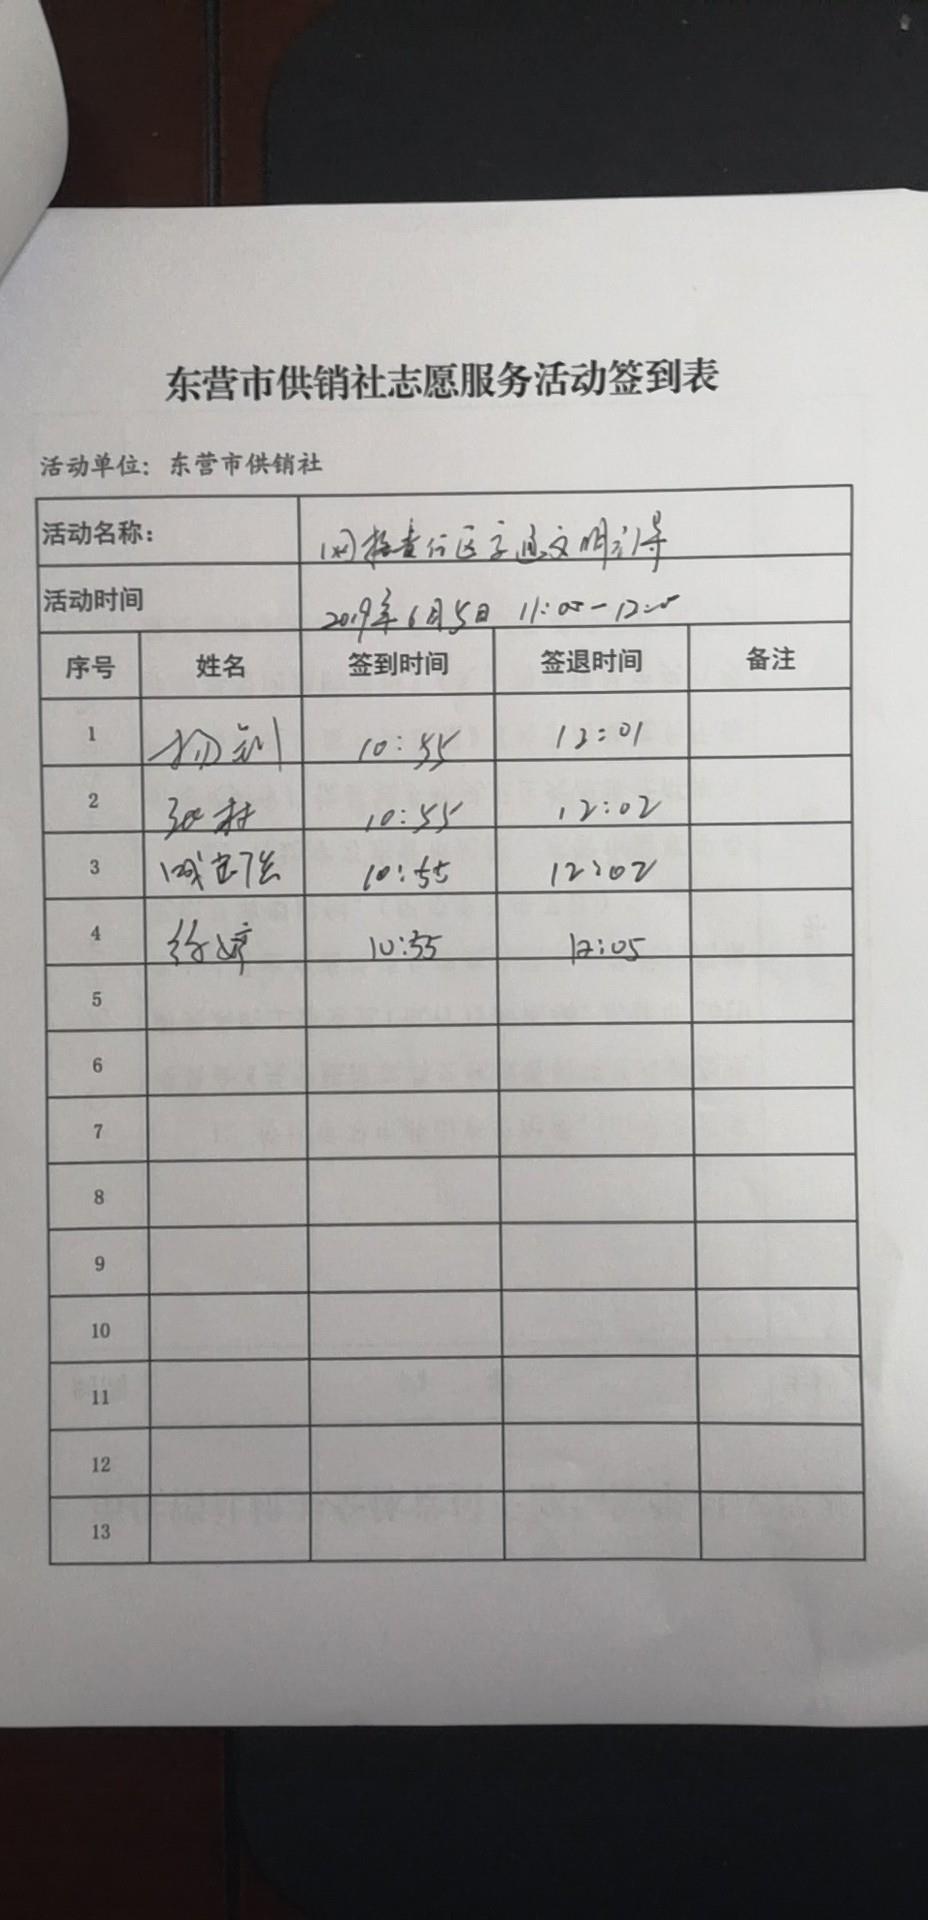 东营市供销社志愿服务活动签到表
活动单位：东营市供销社
活动名称： 网格责任区交通文明引导
活动时间 2019年6月5日 11:00-12:00
序号 姓名 签到时间 签退时间 备注
1 杨 10:55 12:01
2 10:55 12:02
3 10:55 12:02
4 徐婷 10:55 12:05
5
6
7
8
9
10
11
12
13